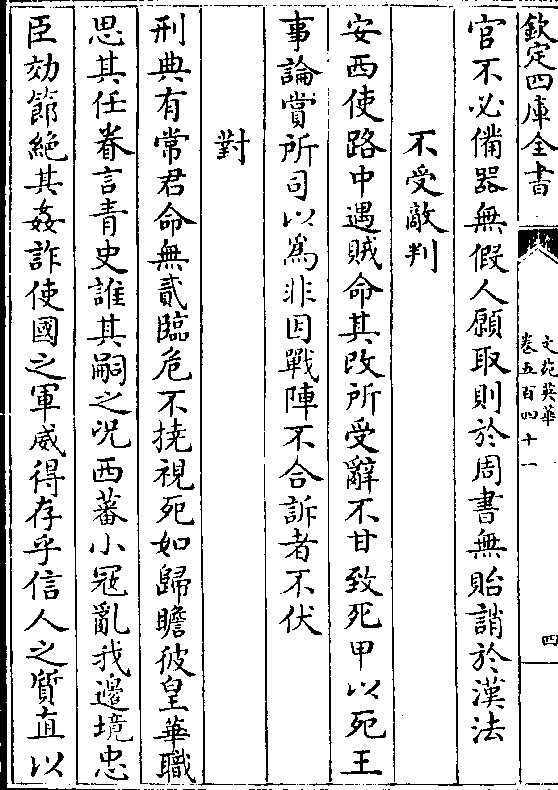 欽定四庫全書
文苑英華
卷五百四十一
四
官不必備器無假人願取則於周書無貽誚於漢法
不受敵判
安西使路中遇賊命其改所受辭不甘致死甲以死王
事論賞所司以為非因戰陣不合訴者不伏
對
刑典有常君命無貳臨危不撓視死如歸瞻彼皇華職
思其任眷言青史誰其嗣之况西蕃小冦亂我邊境忠
臣効節絶其姦詐使國之軍威得存乎信人之質直以